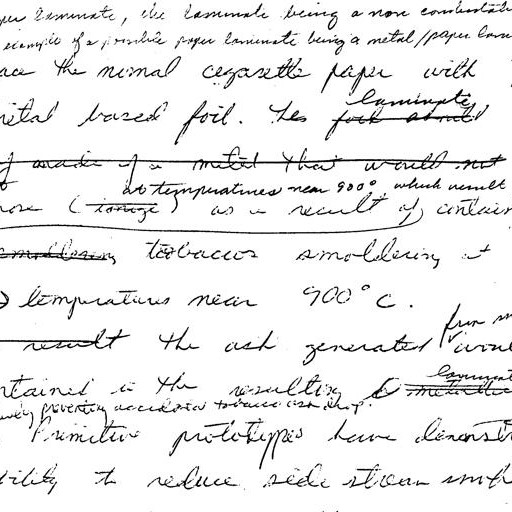 per laminate, the laminate being a non combustible
example of a possible paper laminate being a metal/paper lami
ace the normal cigarette paper with
laminate
metal based foil. The foil should
made of a metal that would not
at temperatures near 900°, which result
(ionize) as a result of containing
smoldering tobaccos smoldering at
temperatures near 900°C.
from sm
result the ash generated would
laminate
ntained in the resulting metallic
preventing accidental tobacco ash drop.
Primitive prototypes have demonst
bility to reduce side stream smok